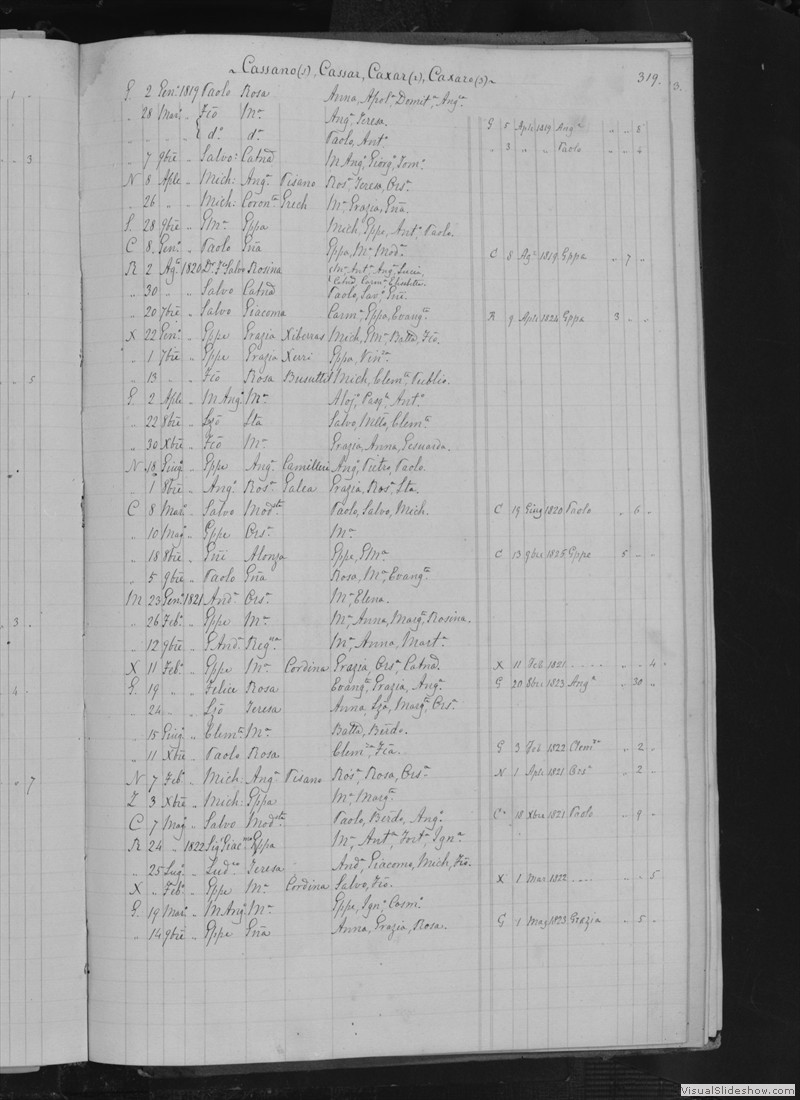 Cassano(s), Cassar, Caxar(s), Caxaro(s) 319.
G. 2 Gen.º 1819 Paolo Rosa Anna, Apol.ª Domit.ª Ang.ª
„ 28 Mar.º „ Fcō M.ª Ang.ª Teresa. G 5 Aple 1819 Ang.ª „ „ 2
„ „ „ „ d.º d.ª Paolo, Ant.º „ 3 „ „ Paolo „ „ 4
„ 7 9bre „ Salvo: Catnā M Ang.º Giorg.º Tom.º
N 8 Aple „ Mich: Ang.ª Pisano Ros.ª Teresa, Ors.ª
„ 26 „ „ Mich: Coron.ª Grech M.ª Grazia, Gña.
S. 28 9bre „ Gppa Mich, Gppe, Ant.º Paolo.
C 8 Gen.º „ Paolo Gña Gppa, M.ª Mod.ª C 8 Ag.º 1819 Gppa „ 7 „
R 2 Ag.º 1820 Salvo Rosina
„ 30 „ „ Salvo Catnā Paolo, Sav.º Gñe.
„ 20 7bre „ Salvo Giacoma Carm.ª Gppa, Evang.ª R 9 Aple 1824 Gppa 3 „ „
X 22 Gen.º „ Gppe Grazia Xiberras Mich, Batta, Fcō.
„ 1 7bre „ Gppe Grazia Xerri Gppa, Vin.ª
„ 13 „ „ Fcō Rosa Busuttil Mich, Clem.ª Publio.
G. 2 Aple „ M Ang.º M.ª Aloj.º Pasq.ª Ant.º
„ 22 8bre „ Lzō Salvo, Clem.ª
„ 30 Xbre „ Fcō M.ª Grazia, Anna, Gesuarda.
N 18 Giug.º „ Gppe Ang.ª Camilleri Ang.ª Pietro, Paolo.
„ 1 8bre „ Ang.º Ros.ª Galea Grazia, Ros.ª
C 8 Mar.º „ Salvo Mod.sta Paolo, Salvo, Mich. C 19 Giug 1820 Paolo „ 6 „
„ 10 Mag.º „ Gppe Ors.ª M.ª
„ 18 8bre „ Gñi Alonza Gppe, C 13 9bre 1825 Gppe 5 „ „
„ 5 9bre „ Paolo Gña Rosa, M.ª Evang.ª
M 23 Gen.º 1821 And.ª Ors.ª M.ª Elena.
„ 26 Feb.º „ Gppe M.ª M.ª Anna, Marg.ª Rosina.
„ 12 9bre „ And.ª Reg.na M.ª Anna, Mart.ª
X 11 Feb.º „ Gppe M.ª Cordina Grazia, Ors.ª Catnā. X 11 Feb 1821 ..... „ „ 4
G. 19 „ „ Felice Rosa Evang.ª Grazia, Ang.ª G 20 8bre 1823 Ang.ª „ 30 „
„ 24 „ „ Lzō Teresa Anna Lzā, Marg.ª Ors.ª
„ 15 Giug.º „ Clem.e M.ª Batta, Berdo.
„ 11 Xbre „ Paolo Rosa Clem.ª Fcā. G 3 Feb 1822 Clem.ª „ 2 „
N 7 Feb.º „ Mich: Ang.ª Pisano Ros.ª Rosa, Ors.ª N 1 Aple 1821 Ors.ª „ 2 „
Z 3 Xbre „ Mich: Gppa M.ª Marg.ª
C 7 Mag.º „ Salvo Mod.sta Paolo, Berdo, Ang.º C 18 Xbre 1821 Paolo „ 9 „
R 24 „ 1822 Gppa M.ª Ant.ª Fort.ª Ign.ª
„ 25 Lug.º „ Lud.co Teresa And.ª Giacomo, Mich, Fcō.
X „ Feb.º „ Gppe M.ª Cordina Salvo, Fcō. X 1 Mar 1822 .... „ „ 5
G. 19 Mar.º „ M Ang.º M.ª Gppe, Ign.º Cosm.º
„ 14 9bre „ Gppe Gña Anna, Grazia, Rosa. G 1 Mag 1823 Grazia „ 5 „
VisualSlideshow.com